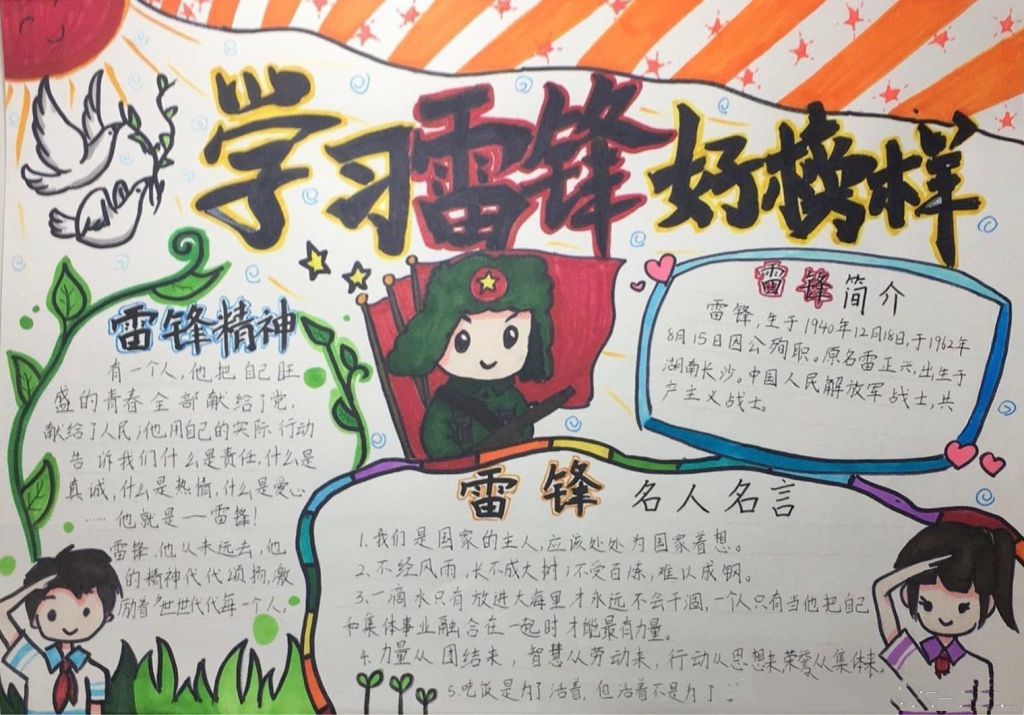 学习雷锋好榜样
雷锋精神
有一个人，他把自己旺
盛的青春全部献给了党，
献给了人民；他用自己的实际行动
告诉我们什么是责任，什么是
真诚，什么是热情，什么是爱心
……他就是——雷锋！
雷锋，他从未远去，他
的精神代代颂扬，激
励着世世代代每一个人。
雷锋简介
雷锋，生于1940年12月18日，于1962年
8月15日因公殉职。原名雷正兴，出生于
湖南长沙。中国人民解放军战士，共
产主义战士。
雷锋名人名言
1.我们是国家的主人，应该处处为国家着想。
2.不经风雨，长不成大树；不受百炼，难以成钢。
3.一滴水只有放进大海里才永远不会干涸，一个人只有当他把自己
和集体事业融合在一起时才能最有力量。
4.力量从团结来，智慧从劳动来，行动从思想来荣誉从集体来。
5.吃饭是为了活着，但活着不是为了